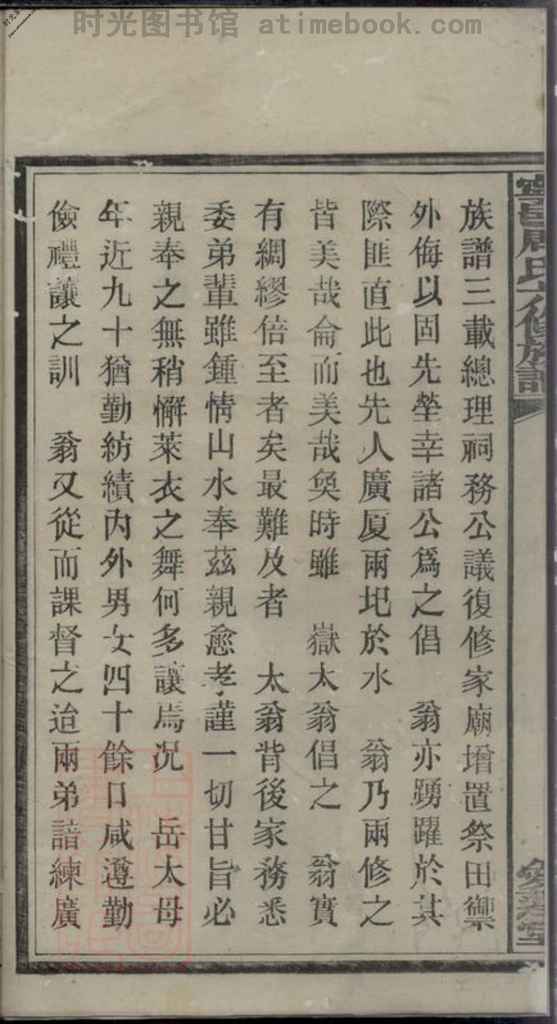 时光图书馆 atimebook.com
邑周氏六修族譜
族譜三載總理祠務公議復修家廟增置祭田禦
外侮以固先塋幸諸公爲之倡 翁亦踴躍於其
際匪直此也先人廣厦兩圯於水 翁乃兩修之
皆美哉侖而美哉奐時雖 嶽太翁倡之 翁實
有綢繆倍至者矣最難及者 太翁背後家務悉
委弟輩雖鍾情山水奉茲親愈老謹一切甘旨必
親奉之無稍懈萊衣之舞何多讓焉况 岳太母
年近九十猶勤紡績內外男女四十餘口咸遵勤
儉禮讓之訓 翁又從而課督之迨兩弟諳練廣